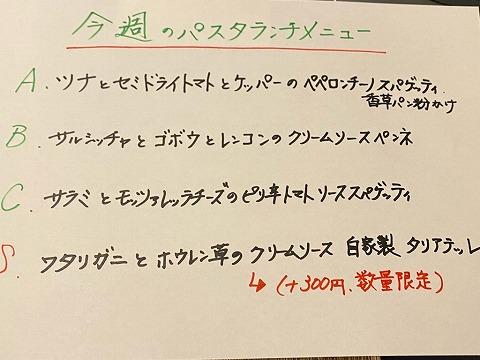 今週のパスタランチメニュー
A. ツナとセミドライトマトとケッパーのペペロンチーノスパゲッティ
香草パン粉かけ
B. サルシッチャとゴボウとレンコンのクリームソースペンネ
C. サラミとモッツァレッラチーズのピリ辛トマトソーススパゲッティ
S. ワタリガニとホウレン草のクリームソース 自家製 タリアテッレ
↳ (+300円、数量限定)